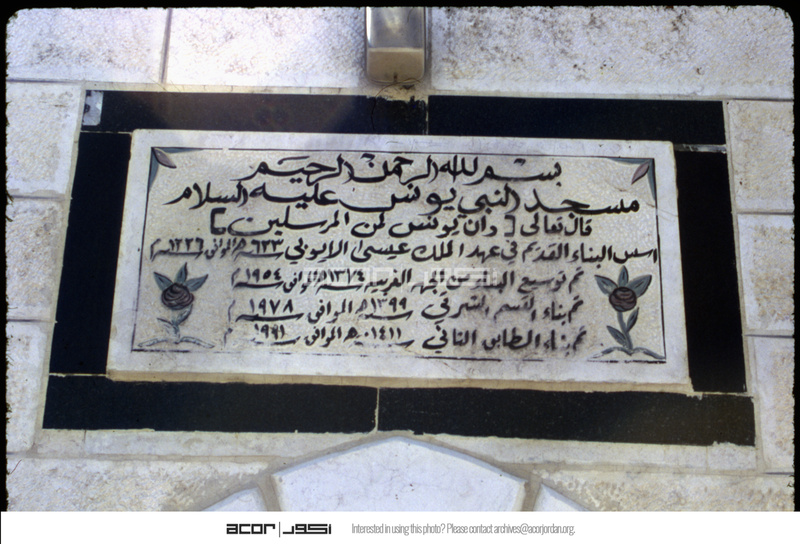 بسم الله الرحمن الرحيم
مسجد النبي يونس عليه السلام
قال تعالى [ وان يونس لمن المرسلين ]
اسس البناء القديم في عهد الملك عيسى الايوبي ٦٢٣ سنة هـ الموافق ١٢٢٦ سنة م
تم توسيع البناء من الجهه الغربيه سنة ١٣٧٤هـ الموافق ١٩٥٤ سنة م
تم بناء القسم الشرقي سنة ١٣٩٩ هـ الموافق ١٩٧٨ سنة م
تم بناء الطابق الثاني سنة ١٤١١ هـ الموافق ١٩٩١ سنة م
acor | اكور Interested in using this photo? Please contact archives@acorjordan.org.